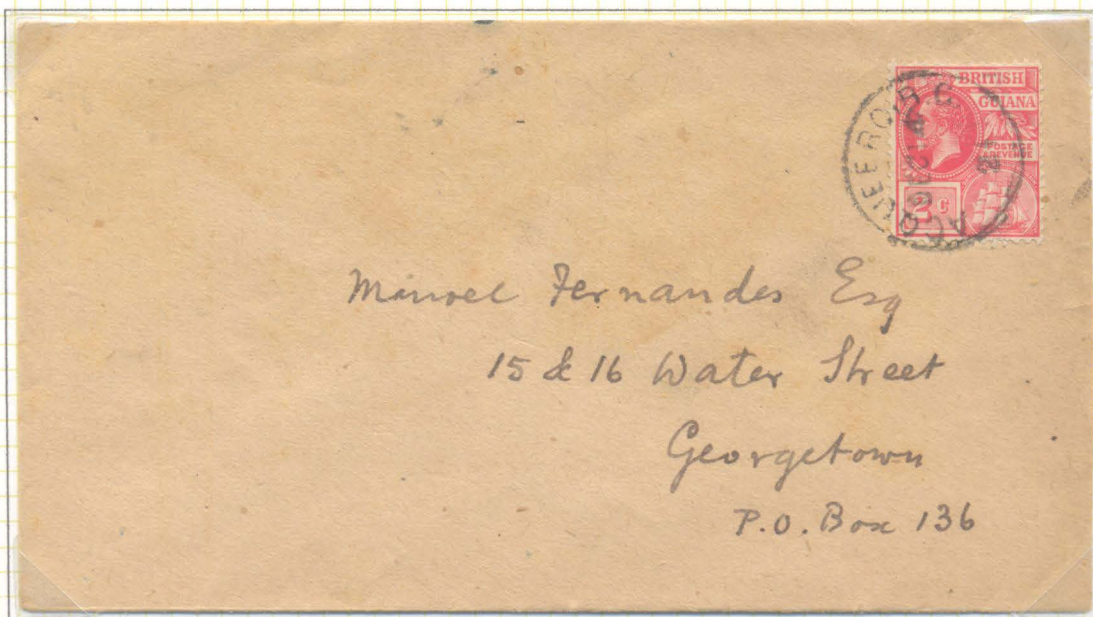 BRITISH
GUIANA
POSTAGE
& REVENUE
2 C
ACQUERO. B.G.
21
Manoel Fernandes Esq
15 & 16 Water Street
Georgetown
P.O. Box 136